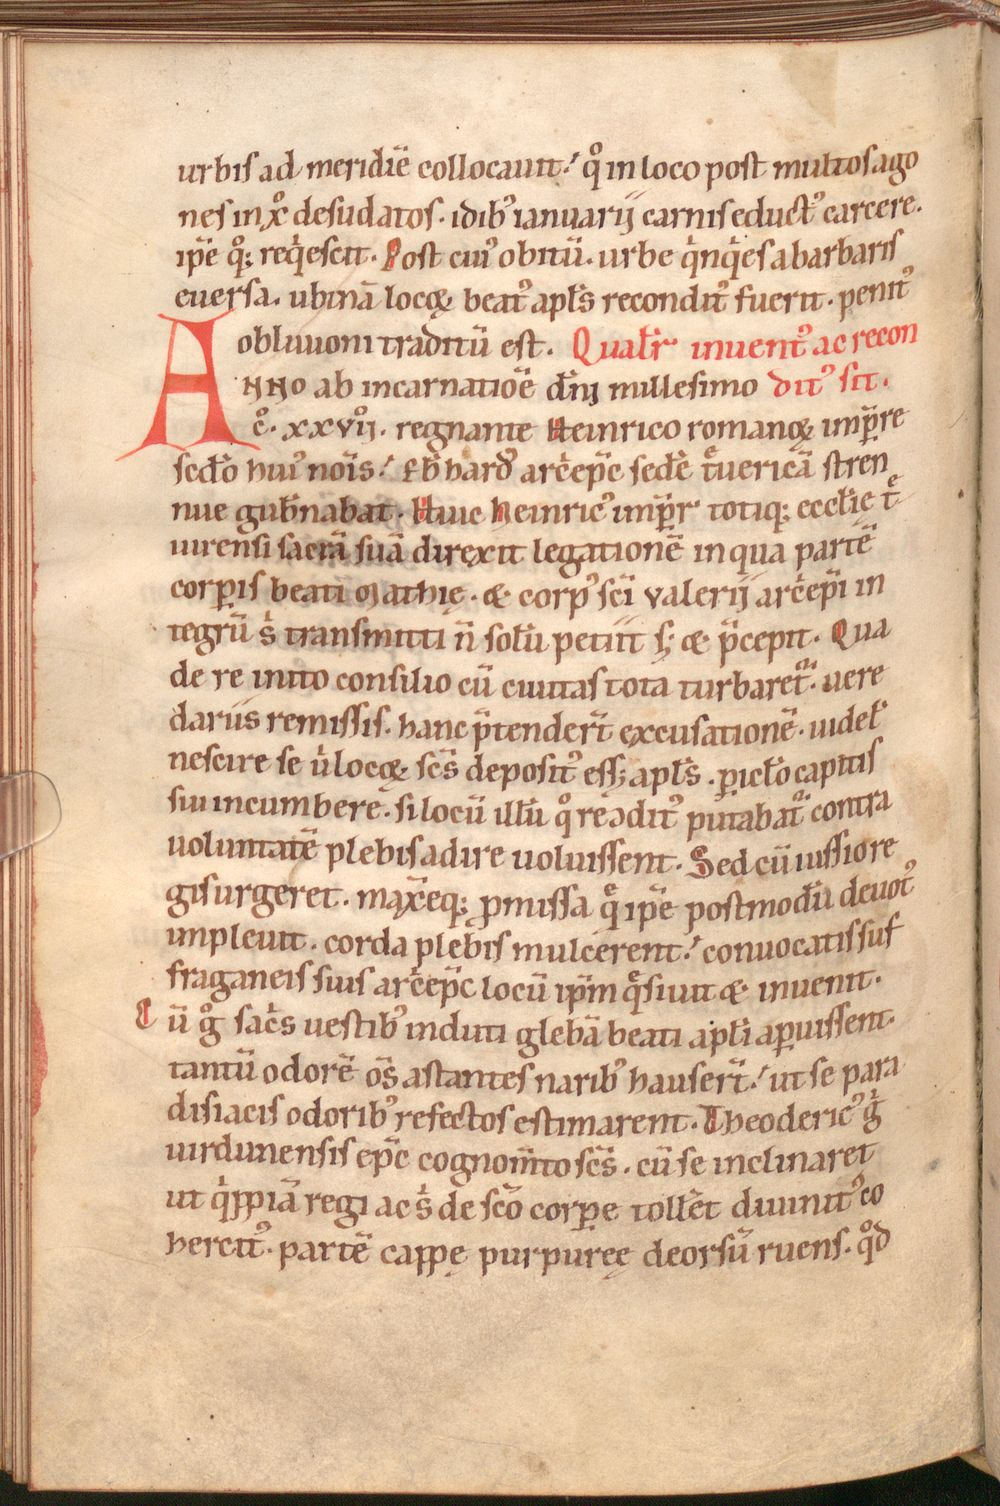 urbis ad meridiē collocauit. q̊ in loco post multos ago
nes in xp̊ desudatos. idib᾽ ianuarij carnis educt᾽ carcere.
ip̄e q̊q; req̇escit. Post cui᾽ obitū. urbe q̇nq̇es a barbaris
euersa. ubinā locoꝝ beat᾽ apl̄s recondit᾽ fuerit. penit᾽
obliuioni traditū est. Qualit̄ inuent᾽ ac recon
ANNO ab incarnatiōe dn̄i millesimo dit᾽ sit.
c̄. xxvij̊. regnante Heinrico romanoꝝ imp̄re
scd̄o hui᾽ nōis. Eb̄hard᾽ arc̄ep̄c sedē t̄uericā stren
nue gub̄nabat. Huic Heinric᾽ imp̄r totiq; eccl̄ię t̄
uirensi sacrā suā direxit legationē in qua partē
corp̄is beati Mathię. & corp᾽ sc̄i Valerij arc̄ep̄i in
tegrū s̄ transmitti n̄ solū petiit s; & p̄cepit. Qua
de re inito consilio cū ciuitas tota turbaret᷑. uere
dariis remissis. hanc p̄tender̄t excusationē. uidel᾽
nescire se ů locoꝝ sc̄s deposit᾽ ess; apl̄s. ꝑicl̄o capitis
sui incumbere. si locū illū q̊ recōdit᾽ putabat᷑ contra
uoluntatē plebis adire uoluissent. Sed cū iussio re
gis urgeret. maxīeq; ꝓmissa q̄ ip̄e postmodū deuot᾽
impleuit. corda plebis mulcerent. conuocatis suf
fraganeis suis arc̄ep̄c locū ip̄m q̄siuit & inuenit.
Cū g̊ sac̄s uestib᾽ induti glebā beati apl̄i aꝑuissent.
tantū odorē oṁs astantes narib᾽ hauser̄t. ut se para
disiacis odorib᾽ refectos estimarent. Theoderic᾽ g̊
uirdunensis ep̄c cognom̄to sc̄s. cū se inclinaret
ut q̇ppiā regi ac s̄ de sc̄o corp̄e toll̄et diuinit᾽ co
hercit᾽. partē cappę purpureę deorsū ruens. q̊d